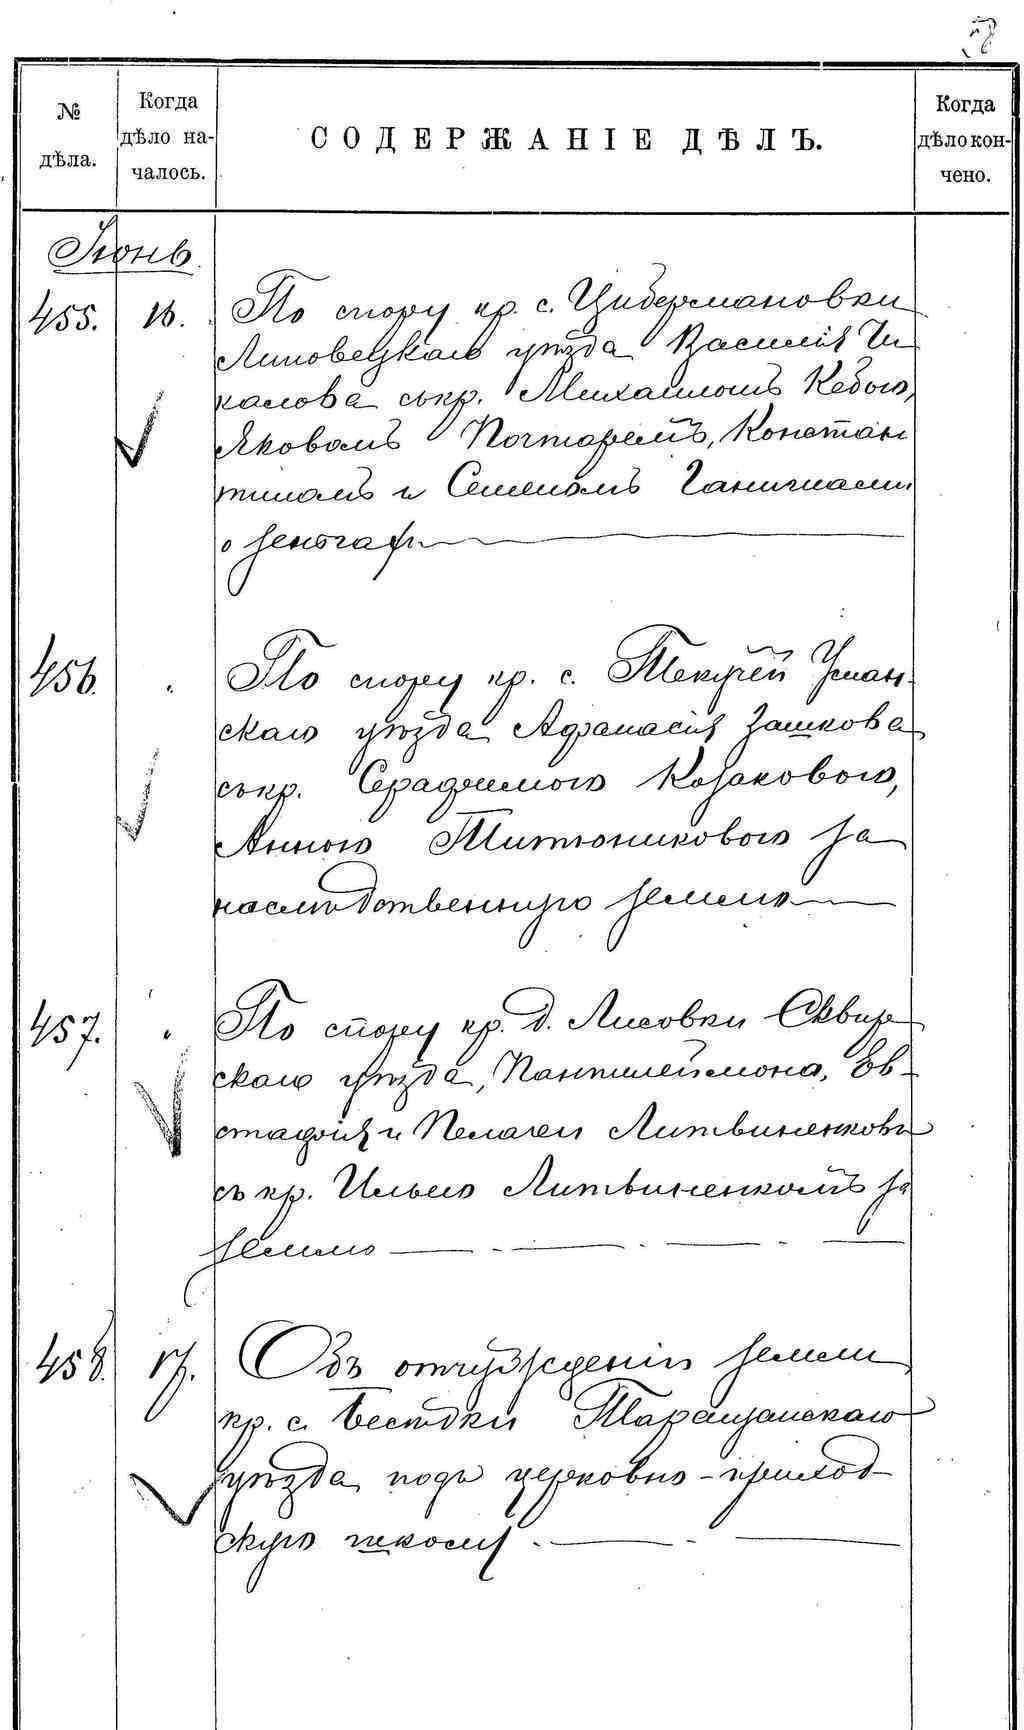 58
№ дѣла.
Когда дѣло на-чалось.
СОДЕРЖАНІЕ ДѢЛЪ.
Когда дѣло кон-чено.
Іюнь.
455. 16. По спору кр. с. Цибермановки
Липовецкаго уѣзда Василія Чи
калова съ кр. Михаиломъ Кебою,
Яковомъ Почтаремъ, Констан
тиномъ и Семеномъ Ганичами
о
456. " По спору кр. с. Текучей Уман-
скаго уѣзда Афанасія Зашкова
съ кр. Серафимою Козаковою,
Анною Титюниковою за
наслѣдственную землю
457. " По спору кр. д. Лисовки Сквир
скаго уѣзда, Пантилеймона, Ев-
стафія и Пелагеи Литвиненковъ
съ кр. Ильею Литвиненкомъ за
землю
458. 17. Объ отчужденіи земли
кр. с. Бестдки Таращанскаго
уѣзда подъ церковно-приход
скую школу.